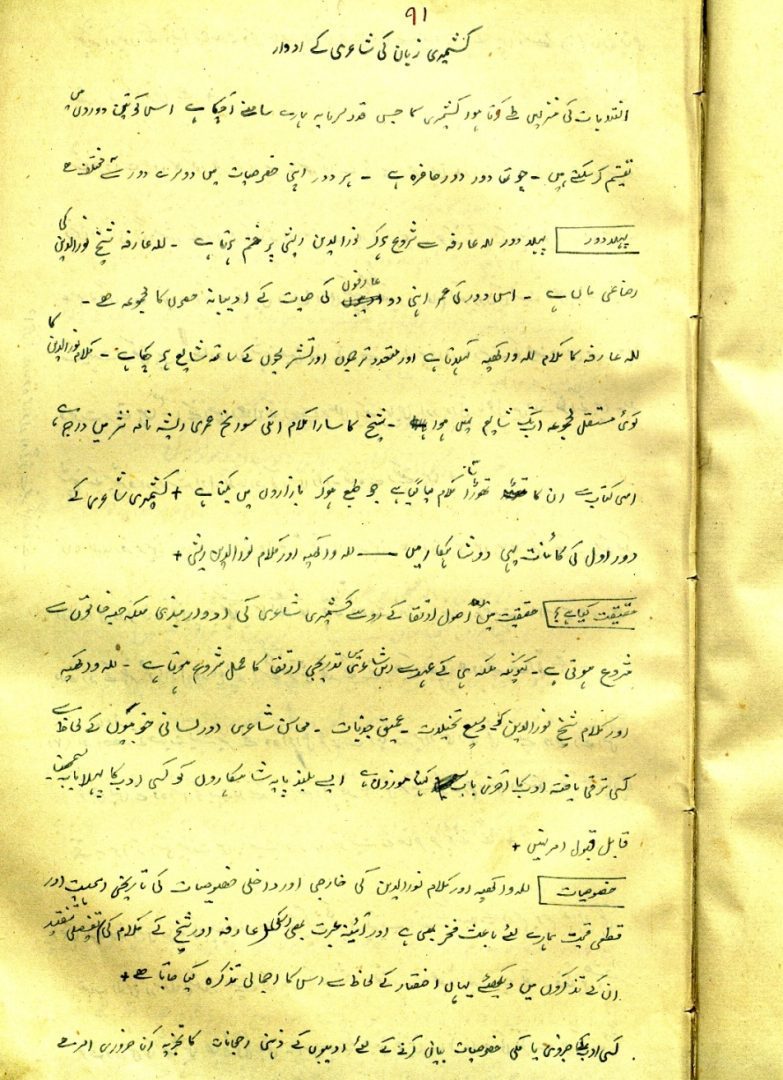 91
کشمیری زبان کی شاعری کے ادوار
انقلابات کی منزلیں طے کرتا ہوا کشمیری کا جس قدر سرمایہ ہمارے سامنے آچکا ہے اس کو تین دوروں میں
تقسیم کر سکتے ہیں - چوتھا دور دور حاضرہ ہے - ہر دور اپنی خصوصیات میں دوسرے دور سے مختلف ہے
پہلا دور پہلا دور للہ عارفہ سے شروع ہوکر نورالدین ریشی پر ختم ہوتا ہے - للہ عارفہ شیخ نورالدین کی
رضاعی ماں ہے - اس دور کی عمر اپنی دو عارفوں کی حیات کے ادیبانہ حصوں کا مجموعہ ہے -
للہ عارفہ کا کلام للہ واکھیہ کہلاتا ہے اور متعدد ترجموں اور تشریحوں کے ساتھ شایع ہو چکا ہے - کلام نورالدین کا
کوئی مستقل مجموعہ اب تک شایع نہیں ہوا - شیخ کا سارا کلام انکی سوانح عمری ریشہ نامہ نثر میں درج ہے
اسی کتاب سے ان کا تھوڑا سا کلام چھاپا گیا ہے جو طبع ہوکر بازاروں میں بکتا ہے + کشمیری شاعری کے
دور اول کی کائنات یہی دو شاہکار ہیں — للہ واکھیہ اور کلام نورالدین ریشی +
حقیقت کیا ہے؟ حقیقت میں اصول ارتقا کے رو سے کشمیری شاعری کی ادوار بندی ملکہ حبہ خاتون سے
شروع ہوتی ہے - کیونکہ ملکہ ہی کے عہد سے اس شاعری میں تدریجی ارتقا کا عمل شروع ہوتا ہے - للہ واکھیہ
اور کلام شیخ نورالدین کو وسیع تخیلات - عمیق جذبات - محاسن شاعری اور لسانی خوبیوں کے لحاظ سے
کسی ترقی یافتہ ادب کا آخری باب کہنا موزوں ہے ایسے بلند پایہ شاہکاروں کو کسی ادب کا پہلا باب سمجھنا
قابل قبول امر نہیں +
خصوصیات للہ واکھیہ اور کلام نورالدین کی خارجی اور داخلی خصوصیات کی تاریخی اہمیت اور
قطعی قیمت ہمارے لئے باعث فخر بھی ہے اور آئینہ عبرت بھی للہ عارفہ اور شیخ کے کلام کی تفصیلی تنقید
ان کے تذکروں میں دیکھئے یہاں اختصار کے لحاظ سے اس کا اجمالی تذکرہ کیا جاتا ہے +
کسی ادب کی جزوی یا کلی خصوصیات بیان کرنے کے لئے ادیبوں کے ذہنی رجحانات کا تجزیہ کرنا ضروری امر ہے